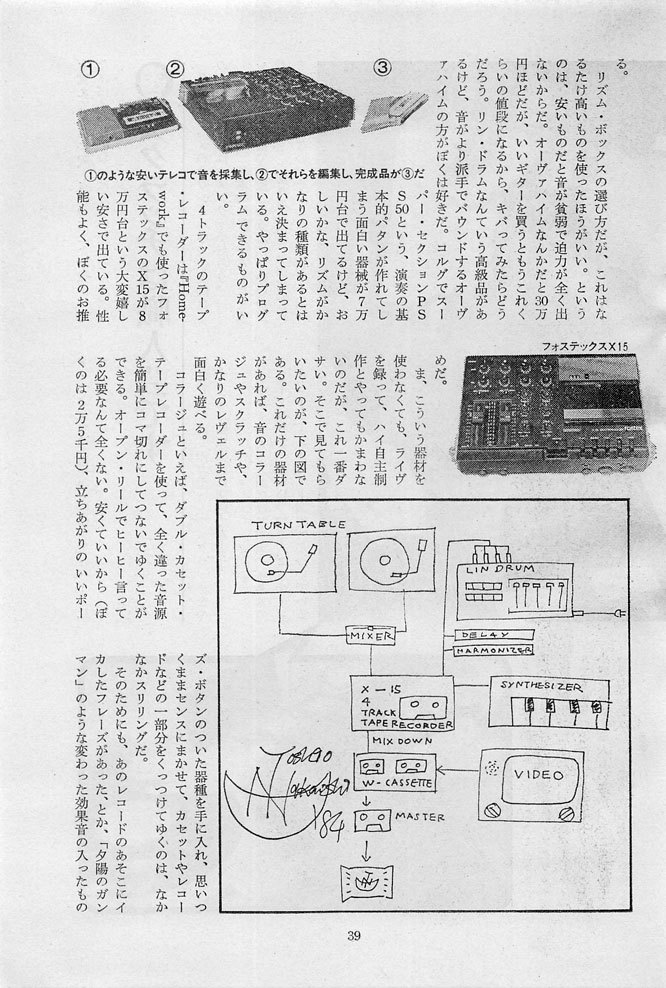 ① ② ③
①のような安いテレコで音を採集し、②でそれらを編集し、完成品が③だ
る。
リズム・ボックスの選び方だが、これはな
るたけ高いものを使ったほうがいい。という
のは、安いものだと音が貧弱で迫力が全く出
ないからだ。オーヴァハイムなんかだと30万
円ほどだが、いいギターを買うともうこれく
らいの値段になるから、キバってみたらどう
だろう。リン・ドラムなんていう高級品があ
るけど、音がより派手でバウンドするオーヴ
ァハイムの方がぼくは好きだ。コルグでスー
パー・セクションPS
S50という、演奏の基
本的パタンが作れてし
まう面白い器械が7万
円台で出てるけど、お
しいかな、リズムがか
なりの種類があるとは
いえ決まってしまって
いる。やっぱりプログ
ラムできるものがい
い。
4トラックのテープ
・レコーダーは『Home
work』でも使ったフォ
ステックスのX15が8
万円台という大変嬉し
い安さで出ている。性
能もよく、ぼくのお推
フォステックスX15
めだ。
ま、こういう器材を
使わなくても、ライヴ
を録って、ハイ自主制
作とやってもかまわな
いのだが、これ一番ダ
サい。そこで見てもら
いたいのが、下の図で
ある。これだけの器材
があれば、音のコラー
ジュやスクラッチや、
かなりのレヴェルまで
面白く遊べる。
コラージュといえば、ダブル・カセット・
テープレコーダーを使って、全く違った音源
を簡単にコマ切れにしてつないでゆくことが
できる。オープン・リールでヒーヒー言って
る必要なんて全くない。安くていいから（ぼ
くのは2万5千円）、立ちあがりのいいポー
ズ・ボタンのついた器種を手に入れ、思いつ
くままセンスにまかせて、カセットやレコー
ドなどの一部分をくっつけてゆくのは、なか
なかスリリングだ。
そのためにも、あのレコードのあそこにイ
カしたフレーズがあった、とか、「夕陽のガン
マン」のような変わった効果音の入ったもの
TURNTABLE
MIXER
LINDRUM
DELAY
HARMONIZER
X-15
4
TRACK
TAPE RECORDER
SYNTHESIZER
MIX DOWN
W-CASSETTE
VIDEO
MASTER
'84
39